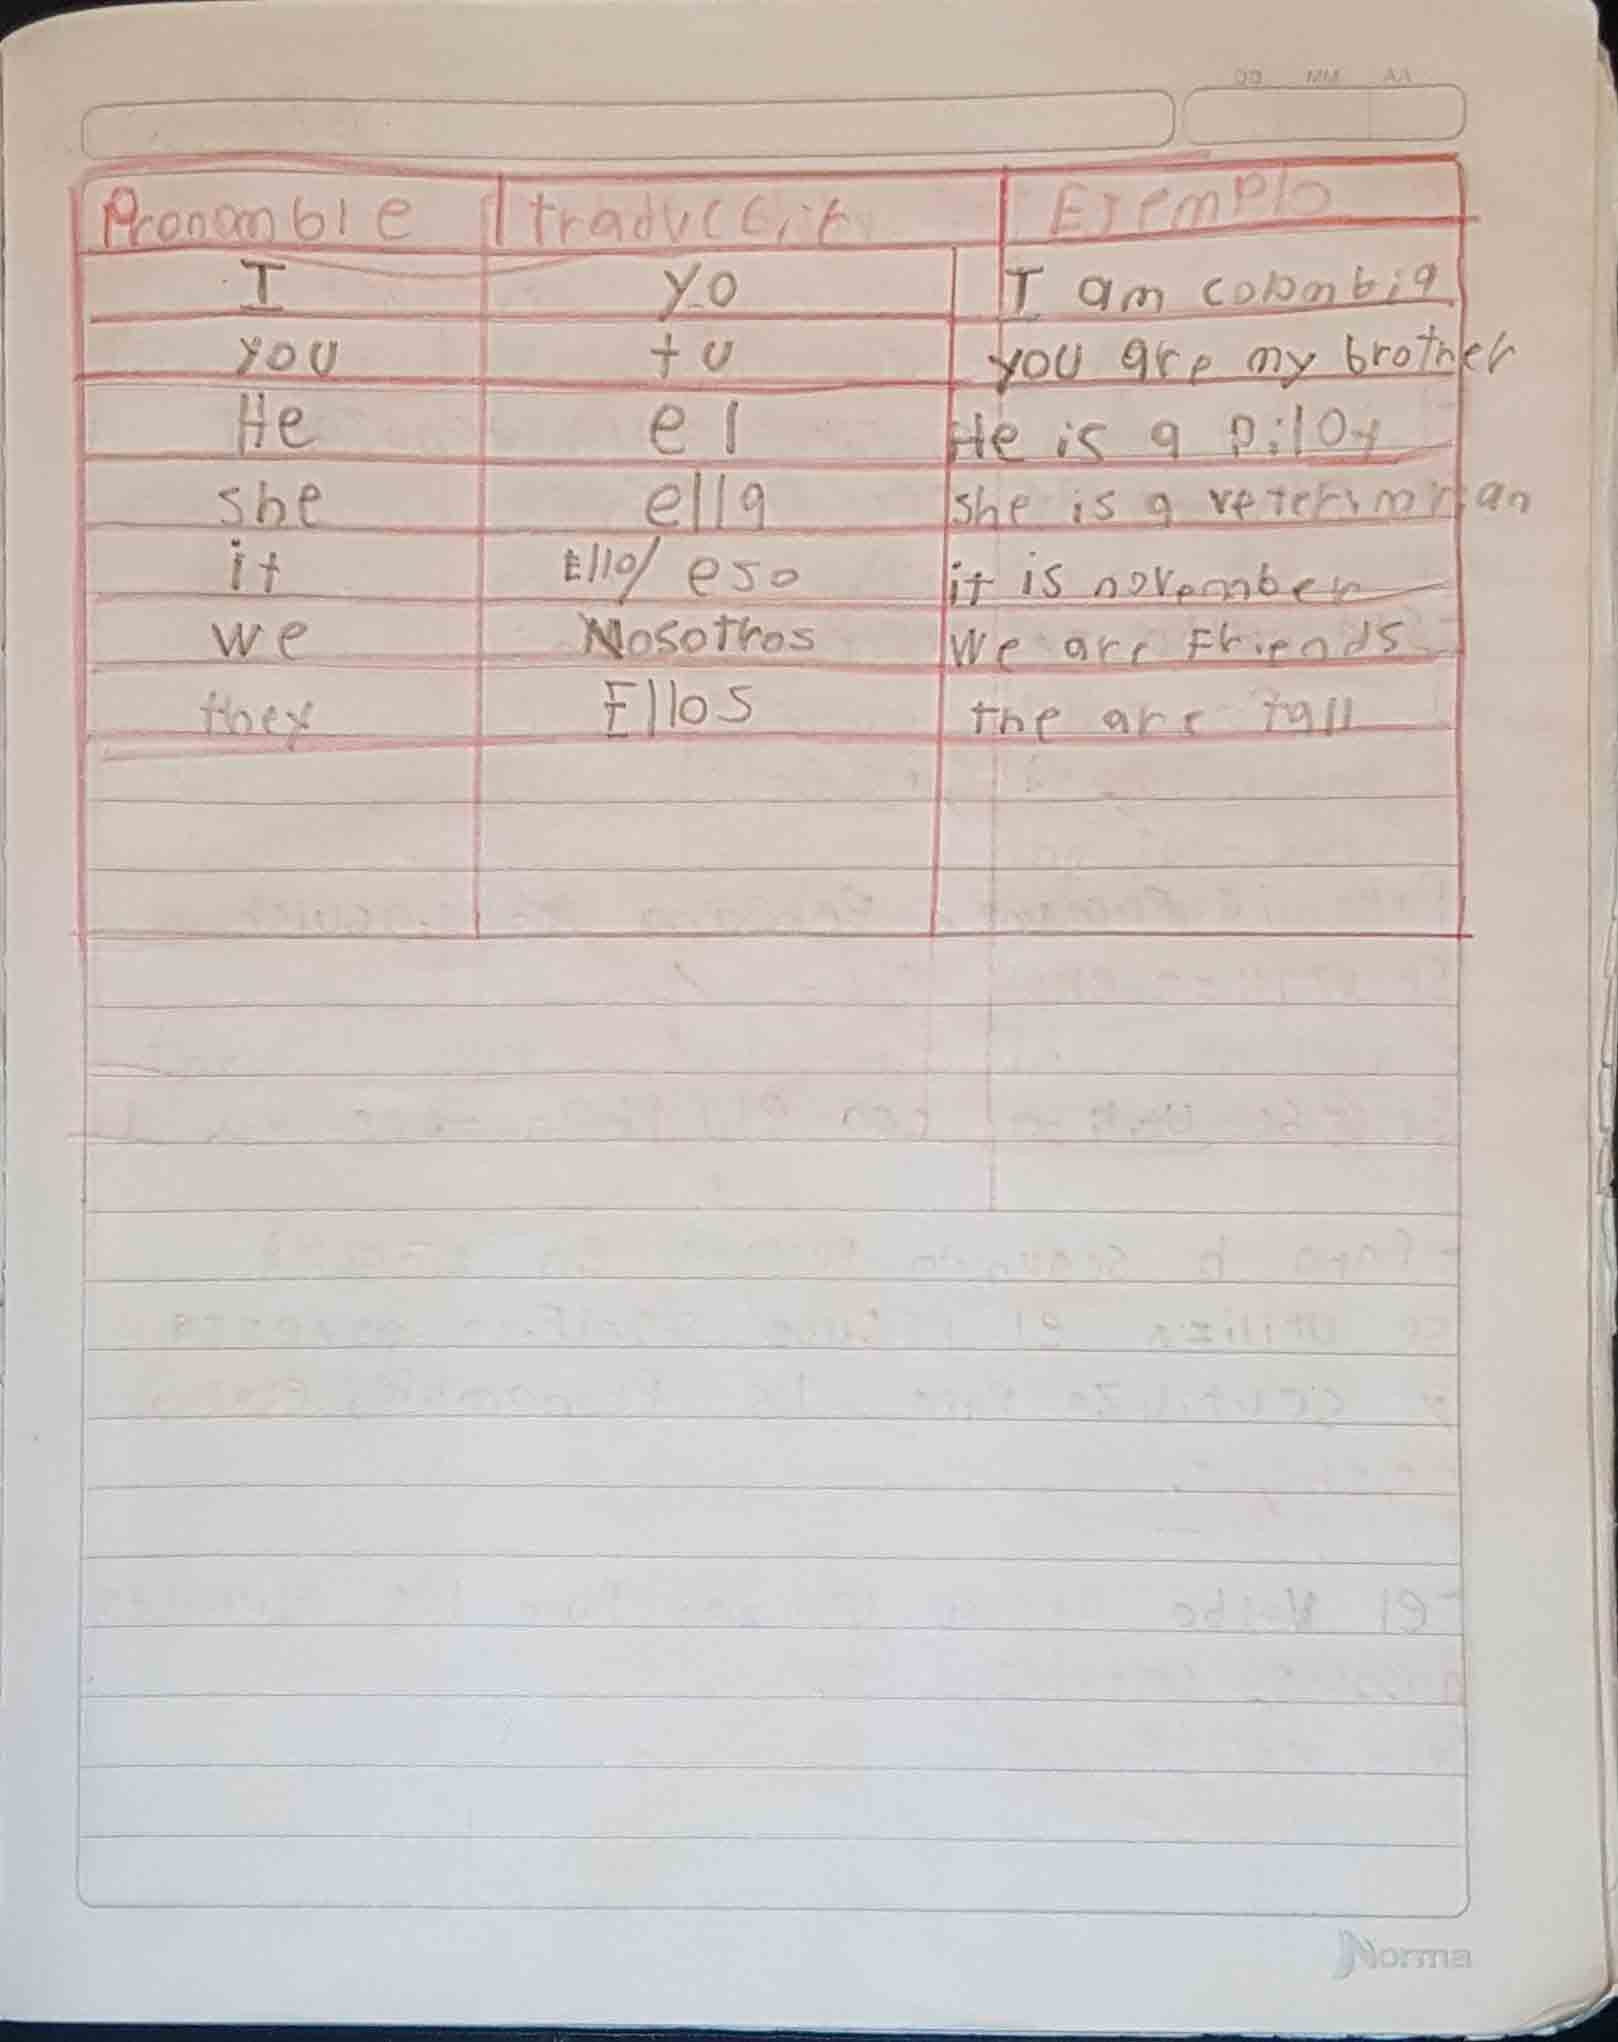 DD MM AA
Pronomble traduccion Exemplo
I yo I am colombia
you tu you are my brother
He el He is a piloy
she ella she is a
it Ello/ eso it is november
we Nosotros we are Friends
they Ellos the are tall
Norma